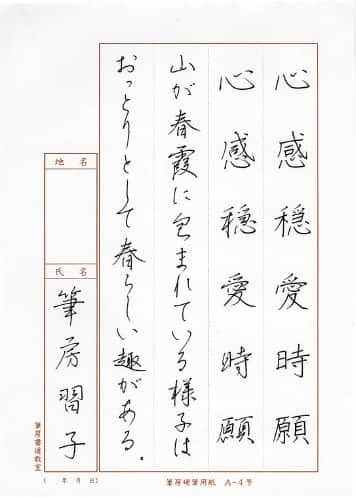 心感穏愛時願
心感穏愛時願
山が春霞に包まれている様子は
おっとりとして春らしい趣がある。
地名
氏名
筆房習子
筆房書道教室
( 年 月 日)
筆房硬筆用紙 A-4号